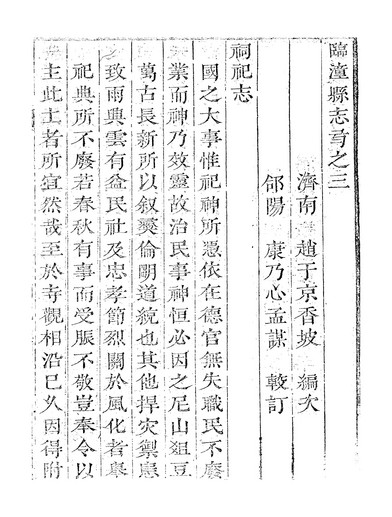 臨潼縣志𢎥之三
濟南 趙于京香坡 編次
郃陽 康乃心孟謀 較訂
祠祀志
國之大事惟祀神所憑依在德官無失職民不廢
業而神乃效靈故治民事神恒必因之尼山俎豆
萬古長新所以叙彝倫闡道統也其他捍灾禦患
致雨興雲有益民社及忠孝節烈關於風化者舉
祀典所不廢若春秋有事而受脤不敬豈奉令以
主此土者所宜然哉至於寺觀相沿巳久因得附